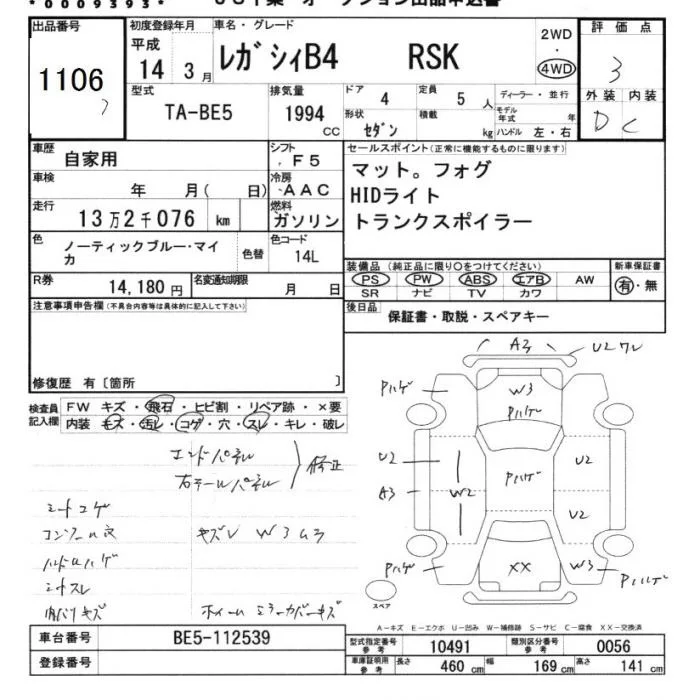 *0009393*
出品番号 1106
初度登録年月 平成 14 3月
車名・グレード レガシィB4 RSK
2WD ・ 4WD
評価点 3
外装 D 内装 C
型式 TA-BE5
排気量 1994 CC
ドア 4
形状 セダン
定員 5 人
積載 kg
ディーラー・並行
モデル年式 年
ハンドル 左・右
車歴 自家用
シフト F5
セールスポイント(正常に機能するものに限ります)
マット。フォグ
HIDライト
トランクスポイラー
車検 年 月( 日)
冷房 AAC
走行 13万2千076 km
燃料 ガソリン
色 ノーティックブルー・マイカ
色替
色コード 14L
装備品 (純正品に限り○をつけてください)
PS PW ABS エアB AW
SR ナビ TV カワ
新車保証書 有・無
R券 14,180円
名変通知期限 月 日
後日品 保証書・取説・スペアキー
注意事項申告欄(不具合内容等は具体的に記入して下さい)
修復歴 有〔箇所 〕
検査員記入欄
FW キズ・飛石・ヒビ割・リペア跡・×要
内装 キズ・汚レ・コゲ・穴・スレ・キレ・破レ
エンドパネル
右テールパネル
修正
シートコゲ
キズレ W3ムラ
シートスレ
内バリキズ
ホイールミラーカバーキズ
A3 U2ワレ
Pハゲ W3 Pハゲ
Pハゲ
U2 W2 Pハゲ U2
A3 U2
Pハゲ XX W3 Pハゲ
スペア
A-キズ E-エクボ U-凹み W-補修跡 S-サビ C-腐食 XX-交換済
車台番号 BE5-112539
登録番号
型式指定番号 参考 10491
類別区分番号 参考 0056
車庫証明用 参考 長さ 460 cm 幅 169 cm 高さ 141 cm